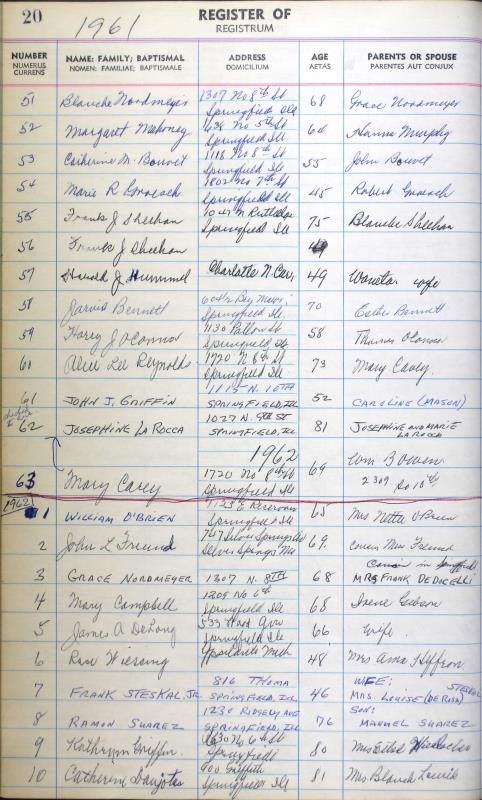 20
1961
REGISTER OF
REGISTRUM
NUMBER NAME: FAMILY; BAPTISMAL ADDRESS AGE PARENTS OR SPOUSE
NUMERUS CURRENS NOMEN: FAMILIAE; BAPTISMALE DOMICILIUM AETAS PARENTES AUT CONJUX
1307 No 8th St
51 Blanche Nordmeyer Springfield Ill 68 Grace Nordmeyer
628 No 5th St
52 Margaret Mahoney Springfield Ill 64 Hanna Murphy
1118 No 8th St
53 Catherine M. Bouvet Springfield Ill 55 John Bouvet
1802 No 7th St
54 Marie R Springfield Ill 45 Robert
1047 N Rutledge
55 Frank J Sheehan Springfield Ill 75 Blanche Sheehan
56 Frank J Sheehan
57 Harold J Hummel Charlotte N. Car. 49 Waneta wife
58 Jarvis Bennett Springfield Ill. 70 Esther Bennett
1130 St
59 Harry J O'Connor Springfield, Ill 58 Thomas O'Connor
1720 N 6th St
60 Alice Lee Reynolds Springfield Ill 73 Mary Casey.
1115 N. 10TH
61 JOHN J. GRIFFIN SPRINGFIELD, ILL 52 CAROLINE (MASON)
1027 N. 9TH ST
62 JOSEPHINE LA ROCCA SPRINGFIELD, ILL 81 JOSEPHINE AND MARIE LA ROCCA
1962
1720 No 8th St 69 Wm Bowen
63 Mary Casey Springfield Ill 2309 So 10th
1962
1123 E
1 WILLIAM O'BRIEN Springfield Ill 65 Mrs Nettie O'Brien
747 Silver Springs
2 John L Freund Silver Springs Md 69. Miss Freund
3 GRACE NORDMEYER 1307 N. 8TH 68 MRS FRANK DEDICELLI
1209 No 6th
4 Mary Campbell Springfield Ill 68 Irene Gibson
5 James A DeLong Springfield Ill 66 wife.
6 Rose Wiersing Ypsilanti Mich 48 Mrs Anna Heffron.
816 THOMA WIFE:
7 FRANK STESKAL, JR. SPRINGFIELD, ILL 46 MRS. LOUISE (DE ROSA) STESKAL
1230 RIDGELY AVE SON:
8 RAMON SUAREZ SPRINGFIELD, ILL 76 MANUEL SUAREZ
1630 No 6th St
9 Kathryn Griffin. Springfield 80 Mrs
900 Griffith
10 Catherine Springfield Ill 81 Mrs Blanch